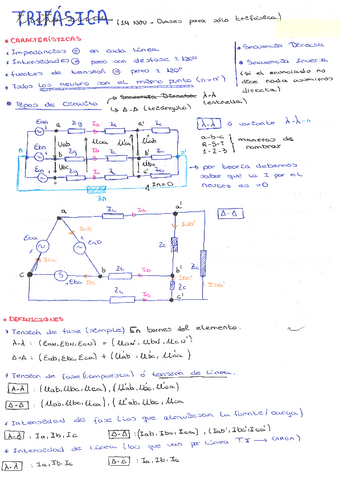 TRIFÁSICA (14 NOV - Clases para solo trifásica)
• CARACTERÍSTICAS
• Impedancias = en cada línea
• Intensidades = pero con desfase ± 120º
• Fuentes de tensión = pero ± 120º
• Todos los neutros son el mismo punto (n=n')
• Secuencia Directa
• Secuencia Inversa
(si el enunciado no
dice nada asumimos
directa)
• Tipos de Circuito
λ-λ (estrella)
Δ-Δ (triángulo)
λ-λ ó variante λ-λ-n
a-b-c
R-S-T
1-2-3
maneras de
nombrar
• por teoría debemos
saber que la I por el
neutro es =0
Ean a Zg Ia ZL a' Z
n Ebn b Zg Ib ZL b' Z n'
Ecn c Zg Ic ZL c' Z
Uab Ubc Uca
In=0
Zn
Δ-Δ
a ZL Ia a'
Eca Eab
c Ebc b ZL Ib b'
ZL Ic c'
Zc
• DEFINICIONES
• Tensión de fase (simple) En bornes del elemento.
λ-λ : (Ean, Ebn, Ecn) = (Uan', Ubn', Ucn')
Δ-Δ : (Eab, Ebc, Eca) ≠ (U'ab, U'bc, U'ca)
• Tensión de fase (compuesta) ó tensión de línea.
λ-λ : (Uab, Ubc, Uca), (U'ab, U'bc, U'ca)
Δ-Δ : (Uab, Ubc, Uca), (U'ab, U'bc, U'ca)
• Intensidad de fase (las que atraviesan la fuente/carga)
λ-λ : Ia, Ib, Ic Δ-Δ : (Iab, Ibc, Ica), (Iab', Ibc', Ica')
• Intensidad de línea (las que van por línea T.I → CARGA)
λ-λ : Ia, Ib, Ic Δ-Δ : Ia, Ib, Ic